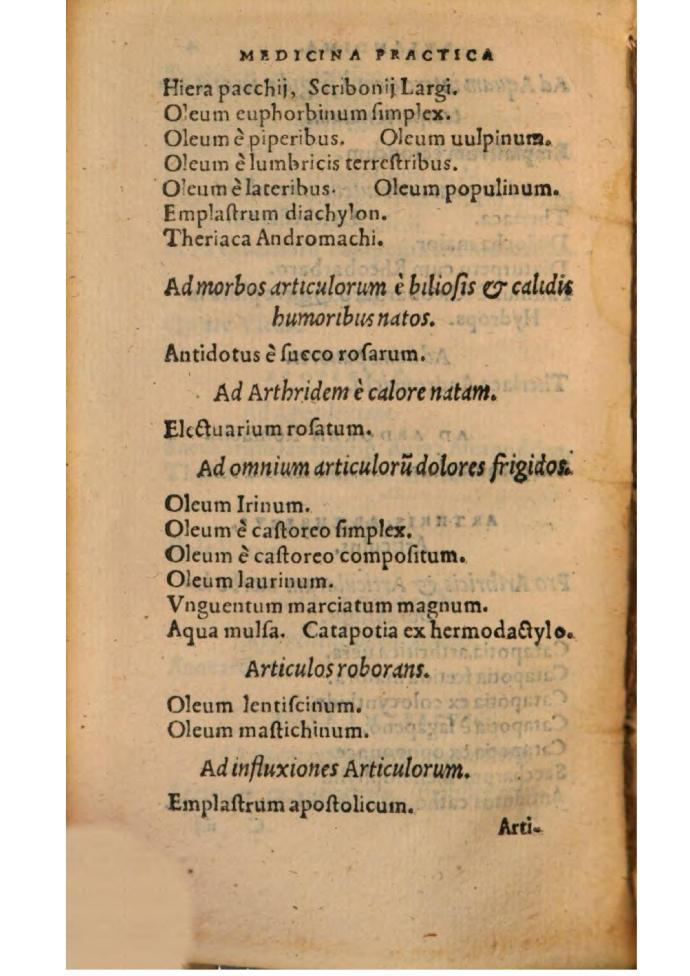 MEDICINA PRACTICA
Hiera pacchij, Scribonij Largi.
Oleum euphorbinum ſimplex.
Oleum è piperibus. Oleum uulpinum.
Oleum è lumbricis terreſtribus.
Oleum è lateribus. Oleum populinum.
Emplaſtrum diachylon.
Theriaca Andromachi.
Ad morbos articulorum è bilioſis & calidis
humoribus natos.
Antidotus è ſucco roſarum.
Ad Arthridem è calore natam.
Electuarium roſatum.
Ad omnium articulorũ dolores frigidos.
Oleum Irinum.
Oleum è caſtoreo ſimplex.
Oleum è caſtoreo compoſitum.
Oleum laurinum.
Vnguentum marciatum magnum.
Aqua mulſa. Catapotia ex hermodactylo.
Articulos roborans.
Oleum lentiſcinum.
Oleum maſtichinum.
Ad influxiones Articulorum.
Emplaſtrum apoſtolicum.
Arti-